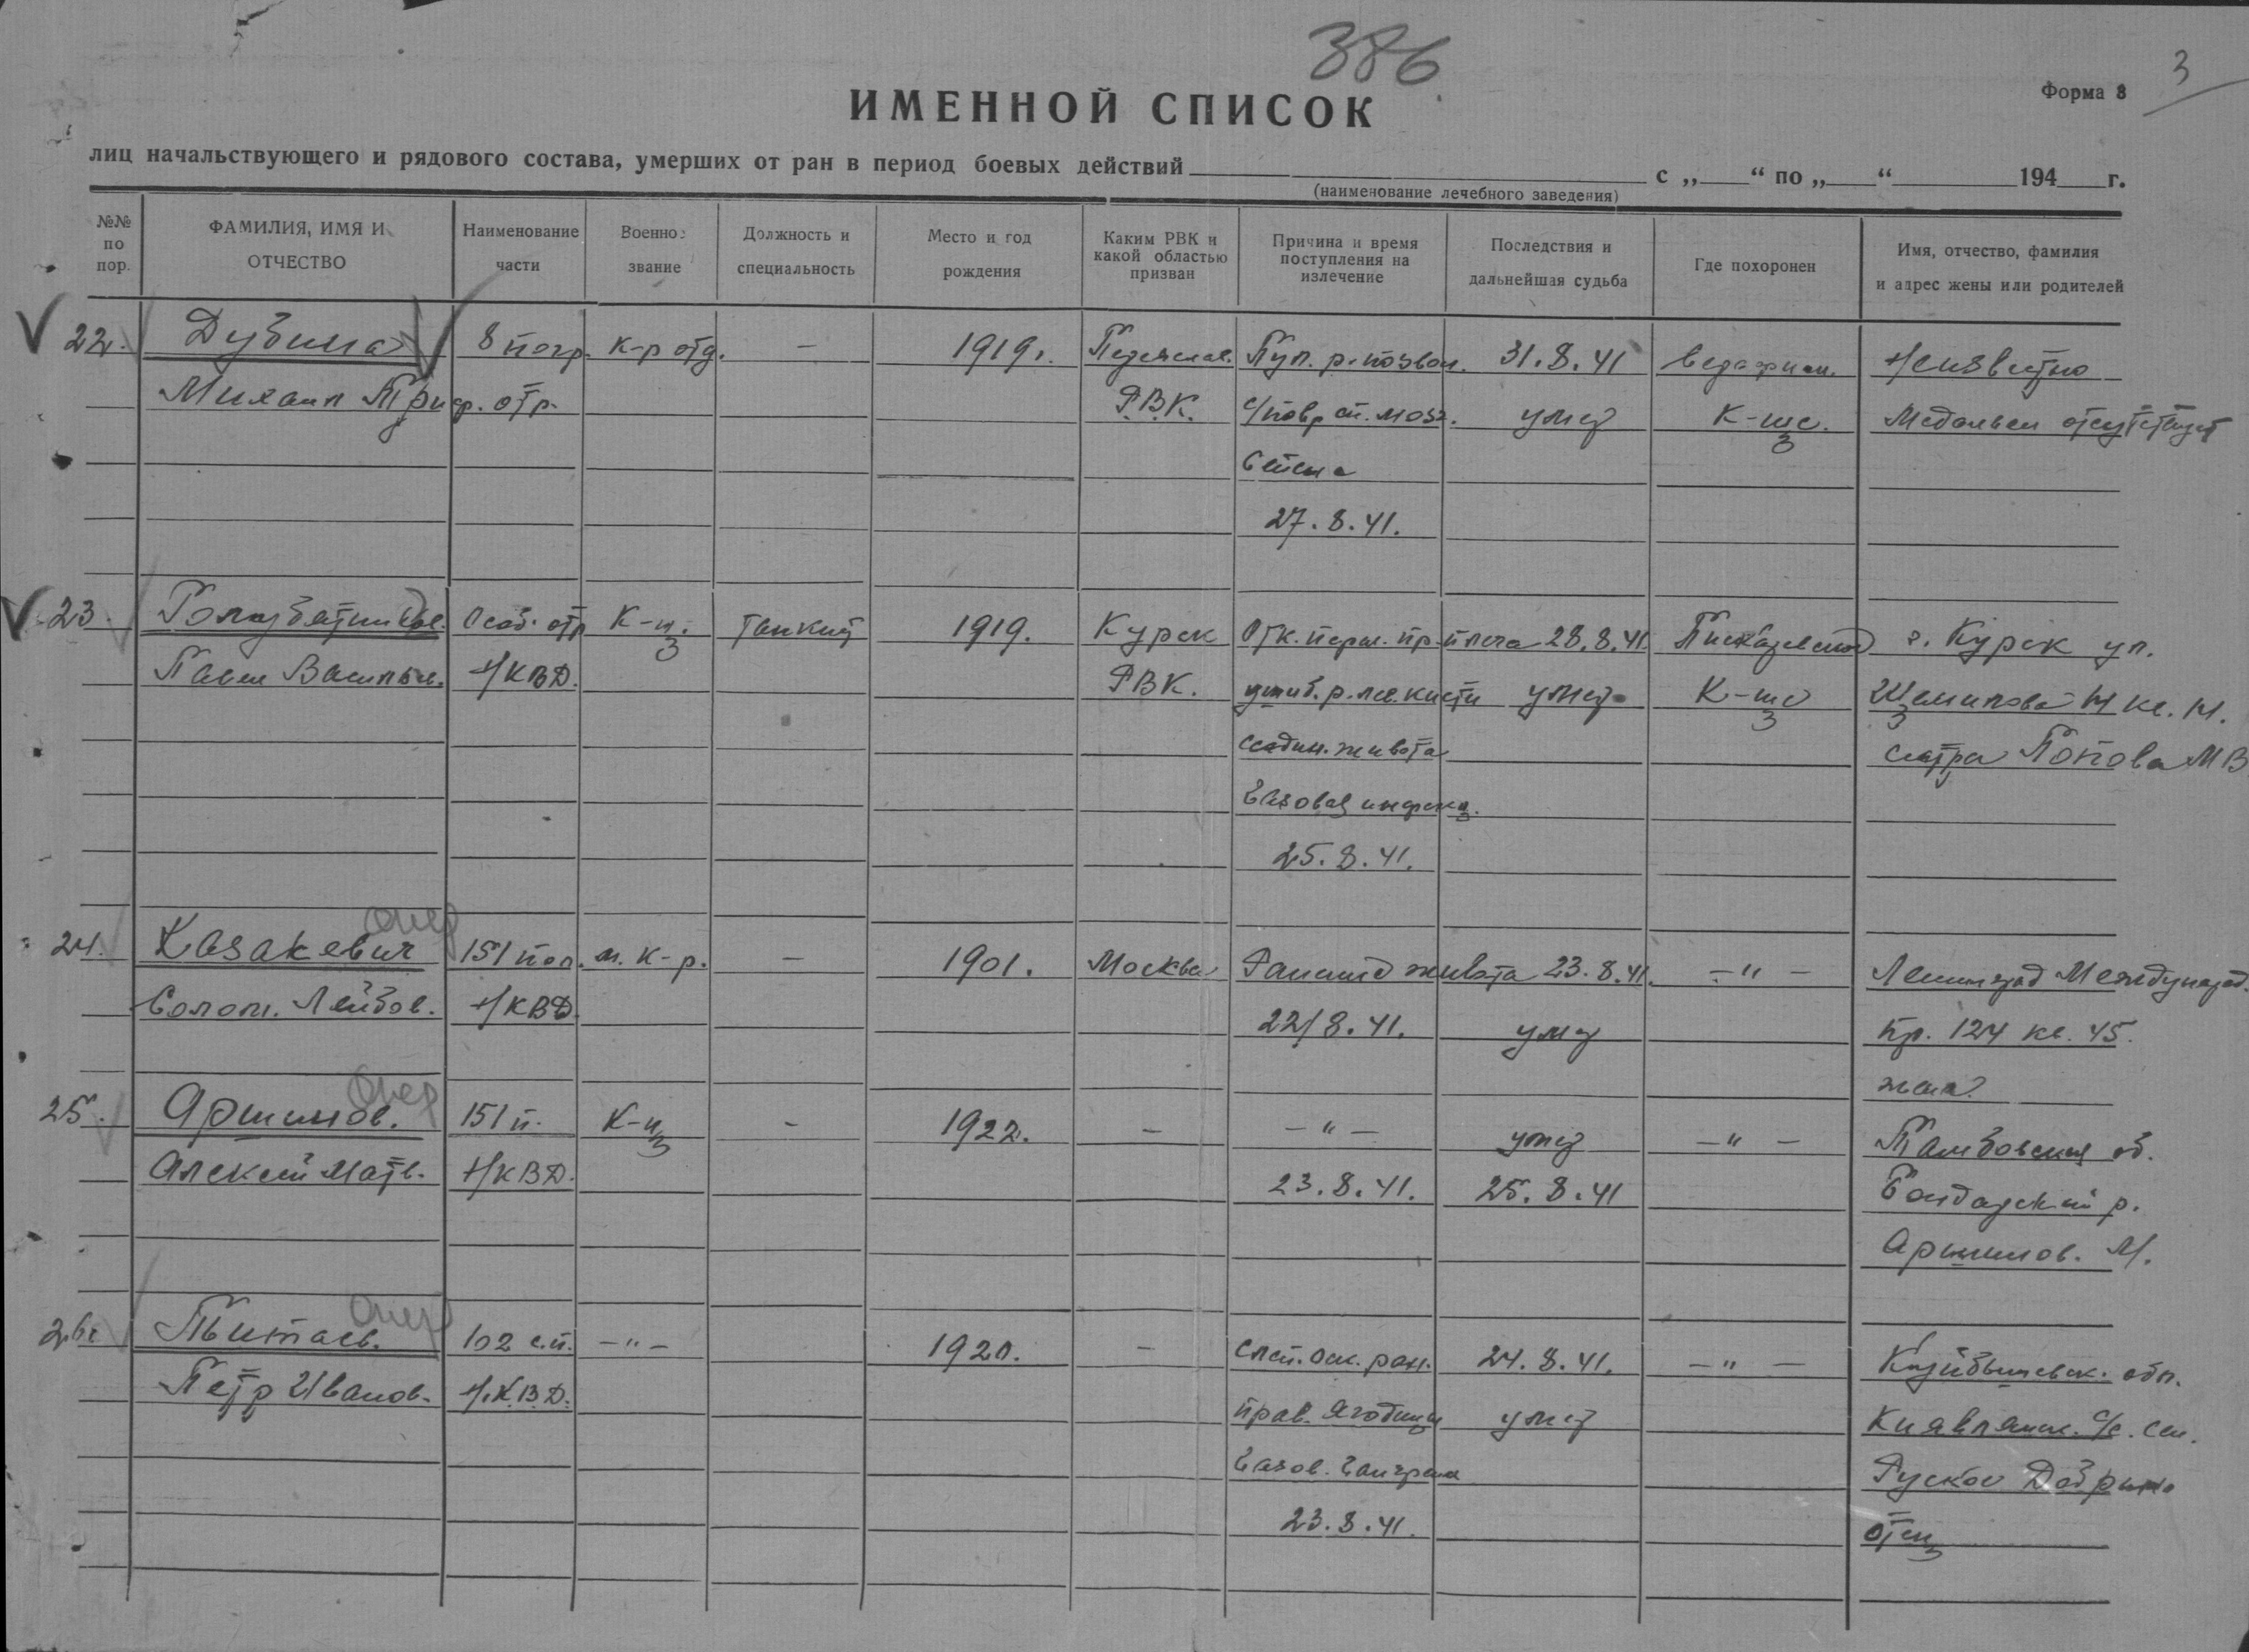 386
3
Форма 8
ИМЕННОЙ СПИСОК
лиц начальствующего и рядового состава, умерших от ран в период боевых действий с „ “ по „ “ 194 г.
(наименование лечебного заведения)
№№ по пор.
ФАМИЛИЯ, ИМЯ И ОТЧЕСТВО
Наименование части
Военное звание
Должность и специальность
Место и год рождения
Каким РВК и какой областью призван
Причина и время поступления на излечение
Последствия и дальнейшая судьба
Где похоронен
Имя, отчество, фамилия и адрес жены или родителей
22. Дубина 8 погр. к-р отд. - 1919г. Пул. р. позвон. 31.8.41 Неизвестно
Михаил Григ. отр. Р.В.К. с/повр сп. мозг. умер К-ще. Медальон отсутствует
27.8.41.
23. Голубятников Особ. отр К-ц. танкист 1919. Курск Отк. перел. пр. плеча 28.8.41. Пискаревское г. Курск ул.
Павел Васильев. НКВД. РВК. ушиб. р. лев. кисти умер К-ще кв. 14.
ссадин. живота сестра Попова МВ
Газовая инфекц.
25.8.41.
опер
24. Казакевич 151 пол. м. к-р. - 1901. Москва Ранение живота 23.8.41. -"- Ленинград Международ.
Солом. Лейбов. НКВД 22/8.41. умер пр. 124 кв. 45.
жена
опер
25. Аршинов. 151 п. К-ц - 1922. - -"- умер -"- Тамбовская об.
Алексей Матв. НКВД. 23.8.41. 25.8.41 Бондарский р.
Аршинов. М.
опер
26. 102 с.п. -"- 1920. - слеп. оск. ран. 24.8.41. -"- Куйбышевск. обл.
Петр Иванов. Н.К.В.Д. прав. ягодицы умер с/с. сел.
Газов. гангрена Руское Добрино
23.8.41. отец